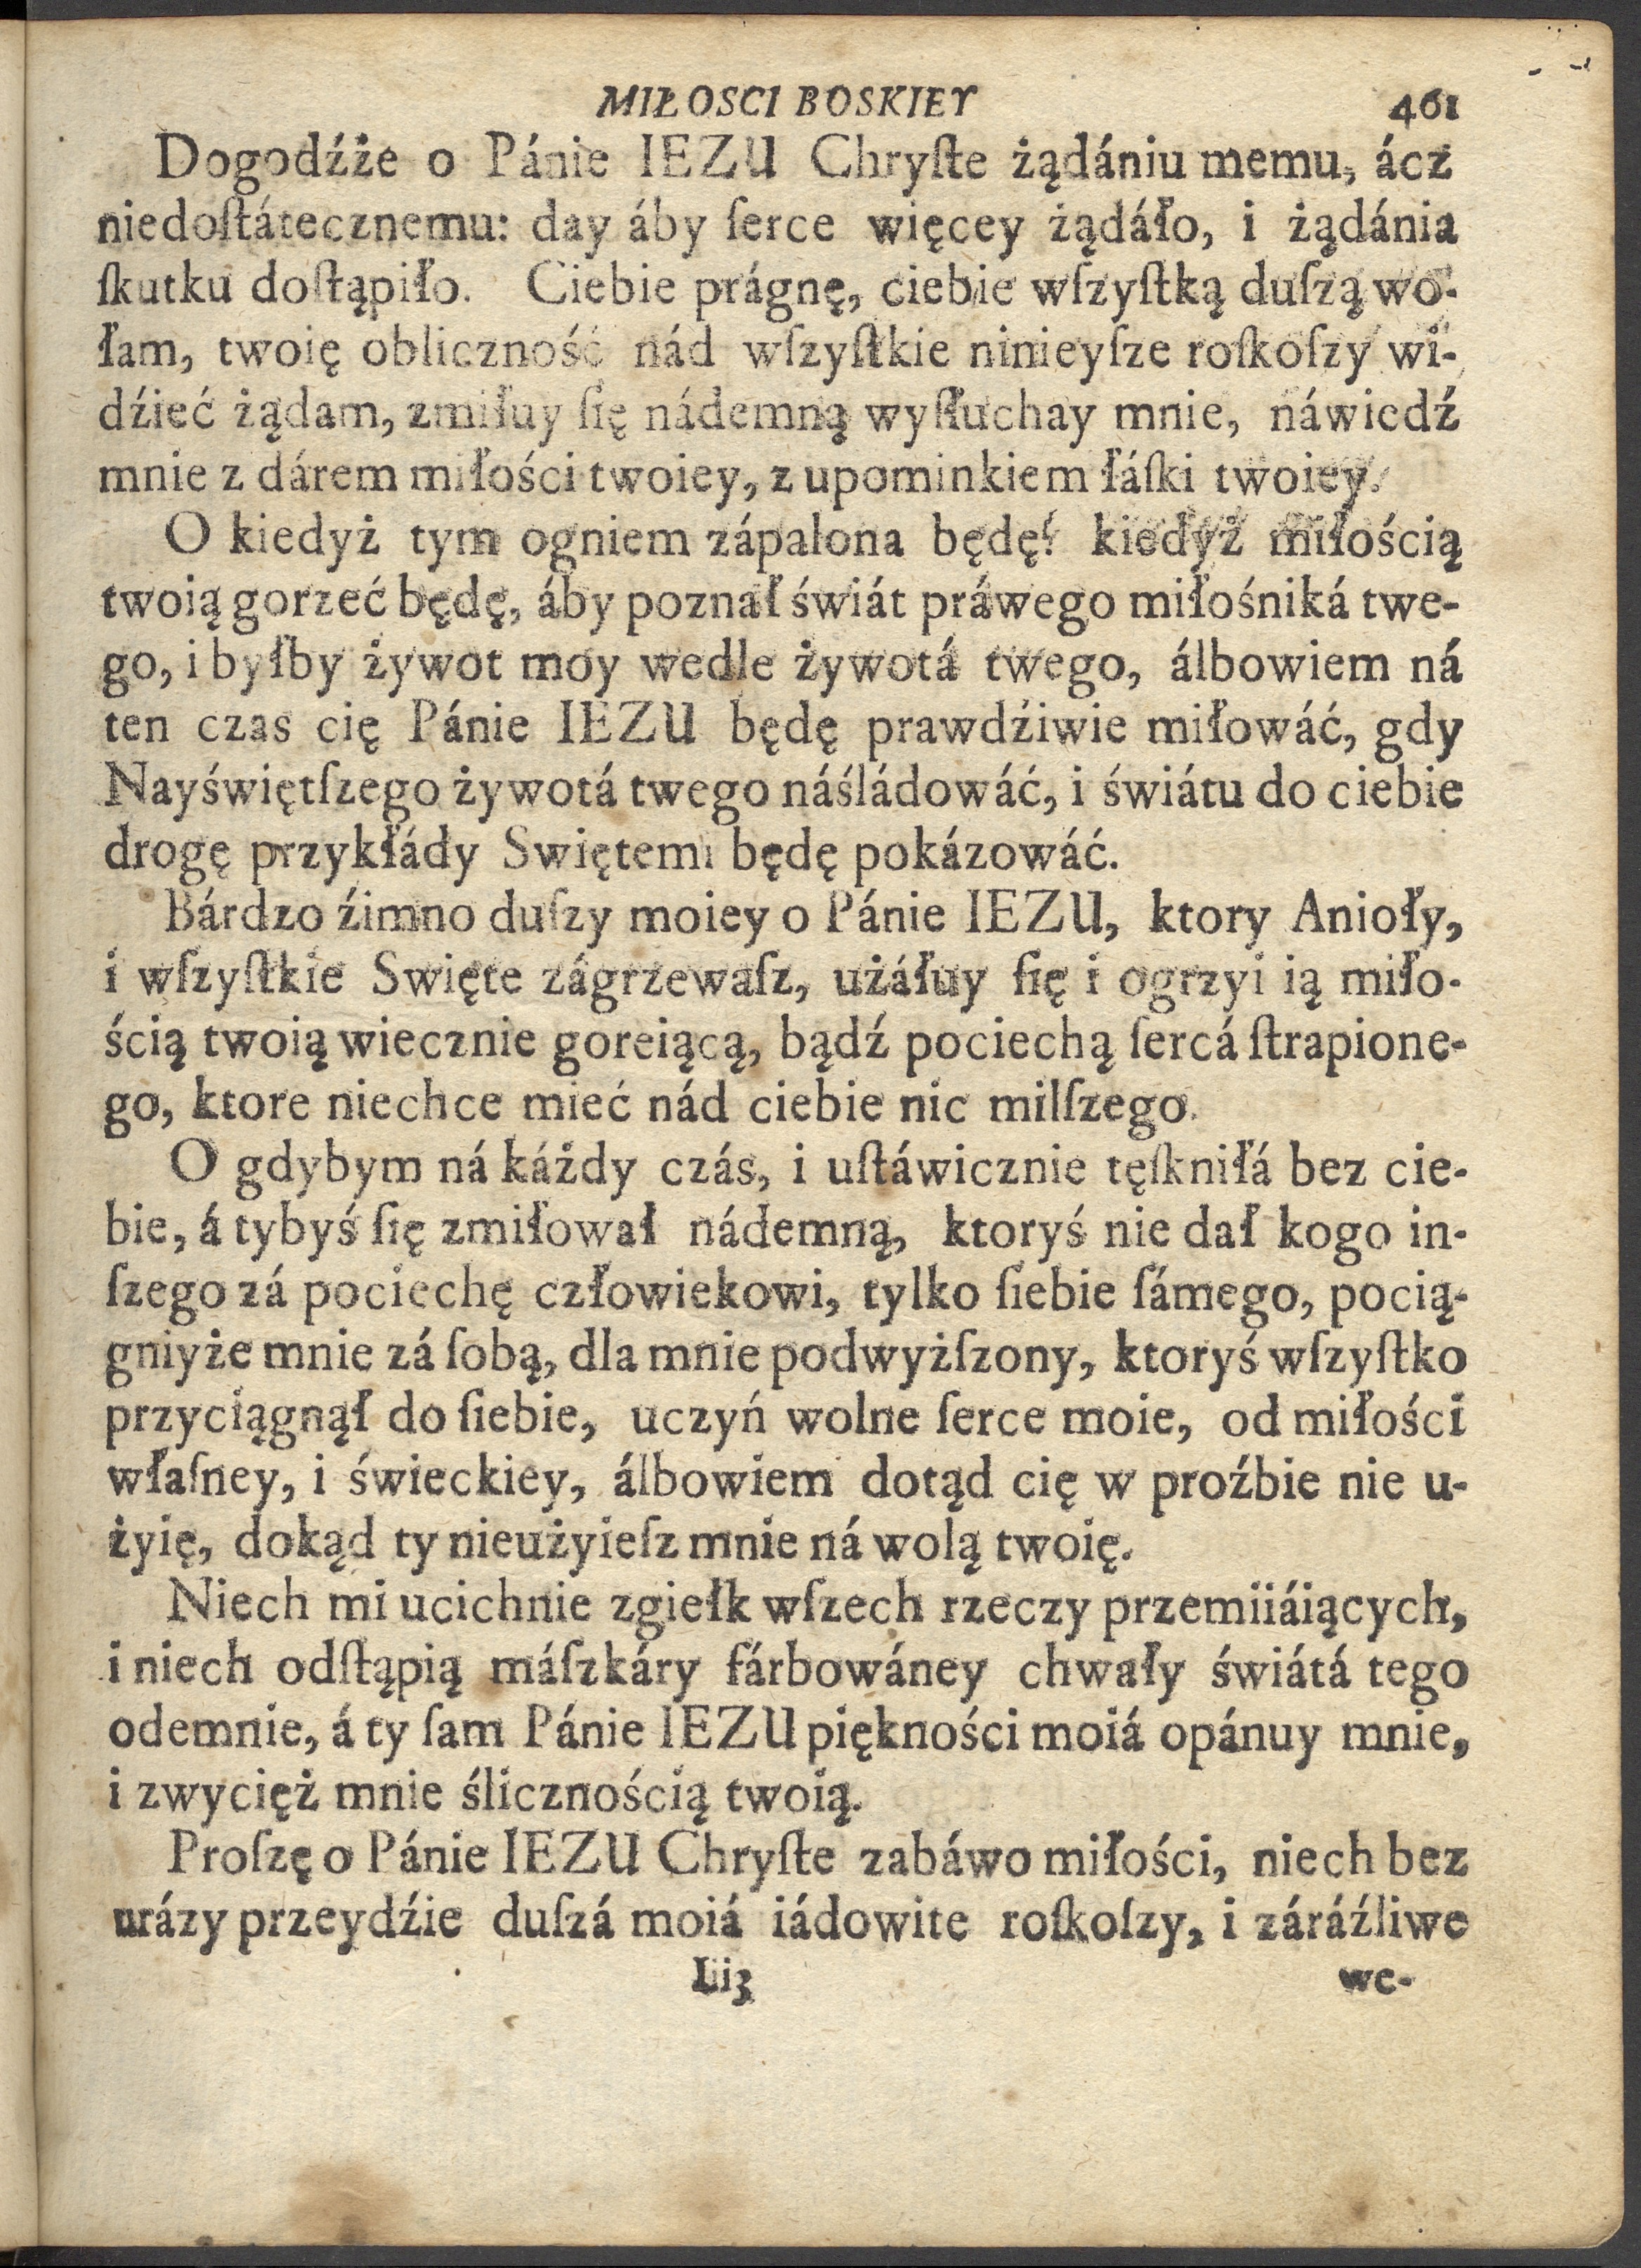 MIŁOSCI BOSKIEY 461
Dogodźże o Pánie IEZU Chryſte żądániu memu, ácz
niedoſtátecznemu: day áby ſerce więcey żądáło, i żądánia
ſkutku doſtąpiło. Ciebie prágnę, ciebie wſzyſtką duſzą wo-
łam, twoię obliczność nád wſzyſtkie ninieyſze roſkoſzy wi-
dźieć żądam, zmiłuy ſię nádemną wyſłuchay mnie, náwiedź
mnie z dárem miłości twoiey, z upominkiem łáſki twoiey.
O kiedyż tym ogniem zápalona będę? kiedyż miłością
twoią gorzeć będę, áby poznał świát práwego miłośniká twe-
go, i byłby żywot moy wedle żywotá twego, álbowiem ná
ten czas cię Pánie IEZU będę prawdźiwie miłowáć, gdy
Nayświętſzego żywotá twego náśládowáć, i świátu do ciebie
drogę przykłády Swiętemi będę pokázowáć.
Bárdzo źimno duſzy moiey o Pánie IEZU, ktory Anioły,
i wſzyſtkie Swięte zágrzewaſz, użáłuy ſię i ogrzyi ią miło-
ścią twoią wiecznie goreiącą, bądź pociechą ſercá ſtrapione-
go, ktore niechce mieć nád ciebie nic milſzego.
O gdybym ná káżdy czás, i uſtáwicznie tęſkniłá bez cie-
bie, á tybyś ſię zmiłował nádemną, ktoryś nie dał kogo in-
ſzego zá pociechę człowiekowi, tylko ſiebie ſámego, pocią-
gniyże mnie zá ſobą, dla mnie podwyżſzony, ktoryś wſzyſtko
przyciągnął do ſiebie, uczyń wolne ſerce moie, od miłości
właſney, i świeckiey, álbowiem dotąd cię w proźbie nie u-
żyię, dokąd ty nieużyieſz mnie ná wolą twoię.
Niech mi ucichnie zgiełk wſzech rzeczy przemiiáiących,
i niech odſtąpią máſzkáry fárbowáney chwały świátá tego
odemnie, á ty ſam Pánie IEZU piękności moiá opánuy mnie,
i zwycięż mnie ślicznością twoią.
Proſzę o Pánie IEZU Chryſte zabáwo miłości, niech bez
urázy przeydźie duſzá moiá iádowite roſkoſzy, i záráźliwe
Iii3 we-